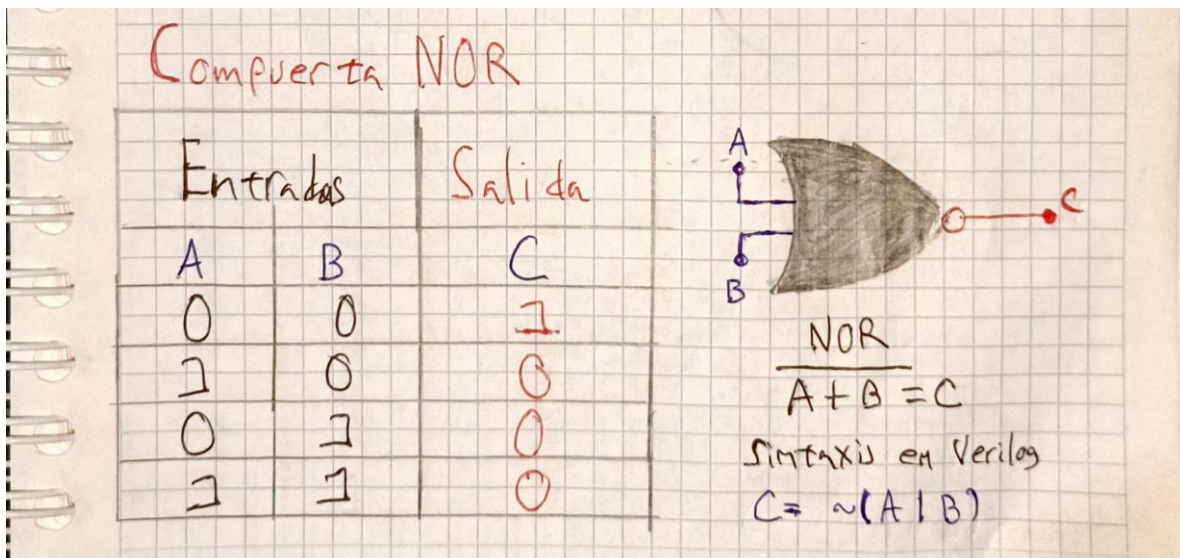 Compuerta NOR
Entradas Salida
A B C
0 0 1
1 0 0
0 1 0
1 1 0
A
B
C
NOR
A + B = C
Sintaxis en Verilog
C= ~(A | B)